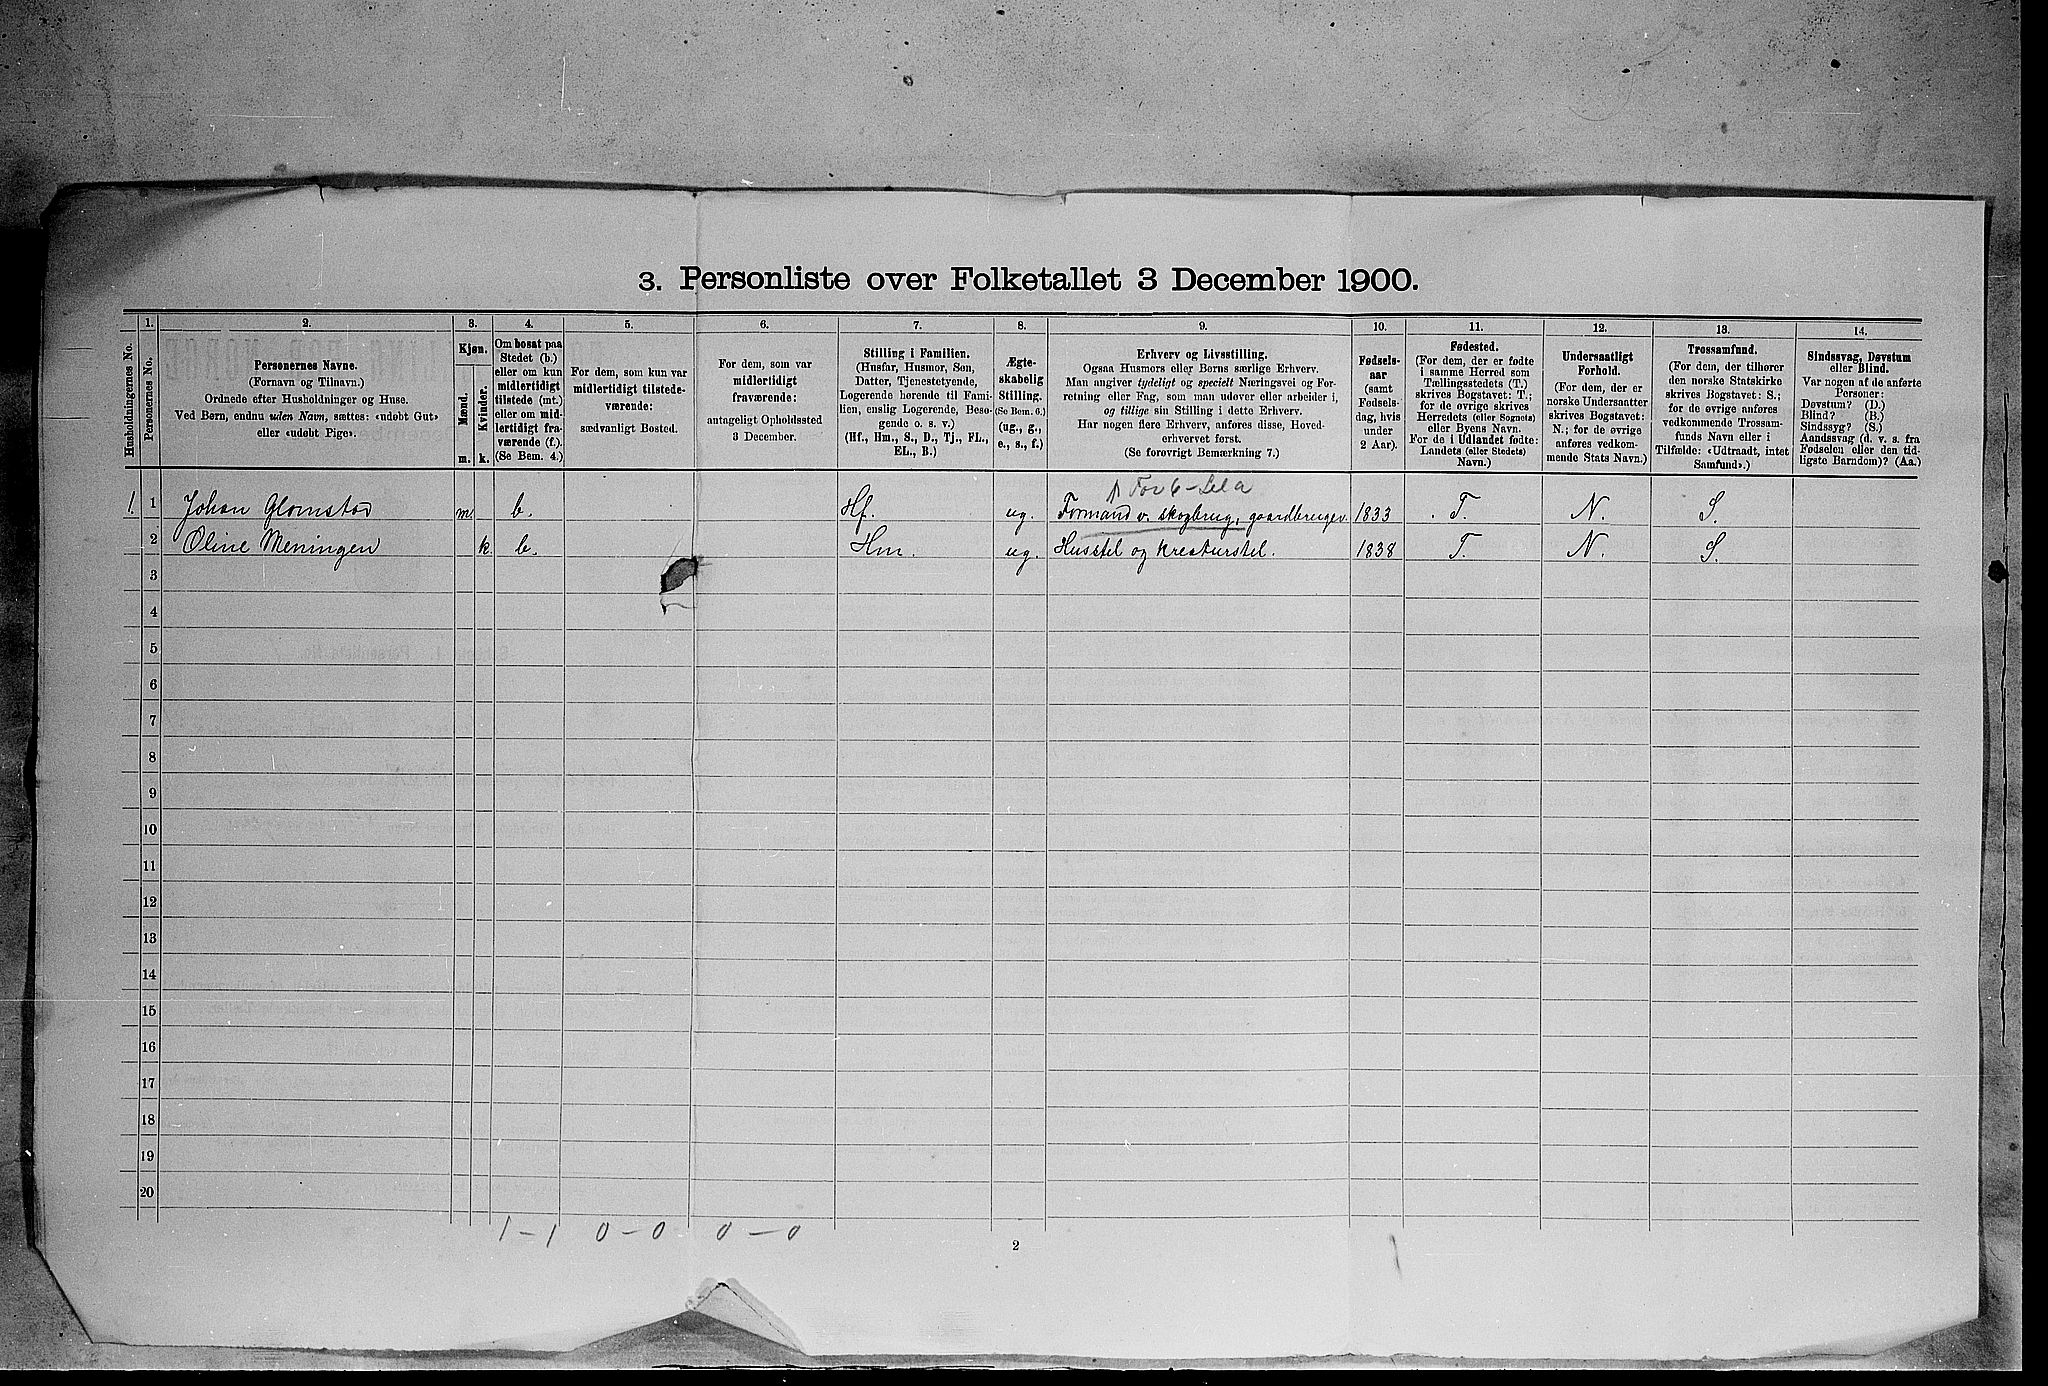 3. Personliste over Folketallet 3 December 1900.
1. 2. 3. 4. 5. 6. 7. 8. 9. 10. 11. 12. 13. 14.
Husholdningernes No.
Personernes No.
Personernes Navne.
(Fornavn og Tilnavn.)
Ordnede efter Husholdninger og Huse.
Ved Børn, endnu uden Navn, sættes: «udøbt Gut»
eller «udøbt Pige».
Kjøn.
Mænd.
Kvinder.
m. k.
Om bosat paa
Stedet (b.)
eller om kun
midlertidigt
tilstede (mt.)
eller om mid-
lertidigt fra-
værende (f.).
(Se Bem. 4.)
For dem, som kun var
midlertidigt tilstede-
værende:
sædvanligt Bosted.
For dem, som var
midlertidigt
fraværende:
antageligt Opholdssted
3 December.
Stilling i Familien.
(Husfar, Husmor, Søn,
Datter, Tjenestetyende,
Logerende hørende til Fami-
lien, enslig Logerende, Besø-
gende o. s. v.)
(Hf., Hm., S., D., Tj., FL.,
EL., B.)
Ægte-
skabelig
Stilling.
(Se Bem. 6.)
(ug., g.,
e., s., f.)
Erhverv og Livsstilling.
Ogsaa Husmors eller Børns særlige Erhverv.
Man angiver tydeligt og specielt Næringsvei og For-
retning eller Fag, som man udøver eller arbeider i,
og tillige sin Stilling i dette Erhverv.
Har nogen flere Erhverv, anføres disse, Hoved-
erhvervet først.
(Se forøvrigt Bemærkning 7.)
Fødsels-
aar
(samt
Fødsels-
dag, hvis
under
2 Aar).
Fødested.
(For dem, der er fødte
i samme Herred som
Tællingsstedets (T.)
skrives Bogstavet: T.;
for de øvrige skrives
Herredets (eller Sognets)
eller Byens Navn.
For de i Udlandet fødte:
Landets (eller Stedets)
Navn.)
Undersaatligt
Forhold.
(For dem, der er
norske Undersaatter
skrives Bogstavet:
N.; for de øvrige
anføres vedkom-
mende Stats Navn.)
Trossamfund.
(For dem, der tilhører
den norske Statskirke
skrives Bogstavet: S.;
for de øvrige anføres
vedkommende Trossam-
funds Navn eller i
Tilfælde: «Udtraadt, intet
Samfund».)
Sindssvag, Døvstum
eller Blind.
Var nogen af de anførte
Personer:
Døvstum? (D.)
Blind? (B.)
Sindssyg? (S.)
Aandssvag (d. v. s. fra
Fødselen eller den tid-
ligste Barndom)? (Aa.)
1. 1 Johan Glomstad m. b. Hf. ug. Formand v. skogbrug, gaardbruger. 1833 T. N. S.
2 Oline Meningen k. b. Hm. ug. Husstel og kreaturstel. 1838 T. N. S.
3
4
5
6
7
8
9
10
11
12
13
14
15
16
17
18
19
20
1 – 1 0 – 0 0 – 0
2